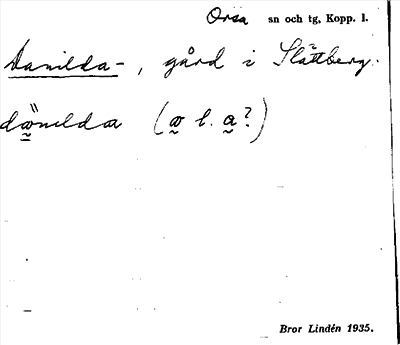 Orsa sn och tg, Kopp. l.
Danilda-, gård i Slättberg.
(a l. a?)
Bror Lindén 1935.